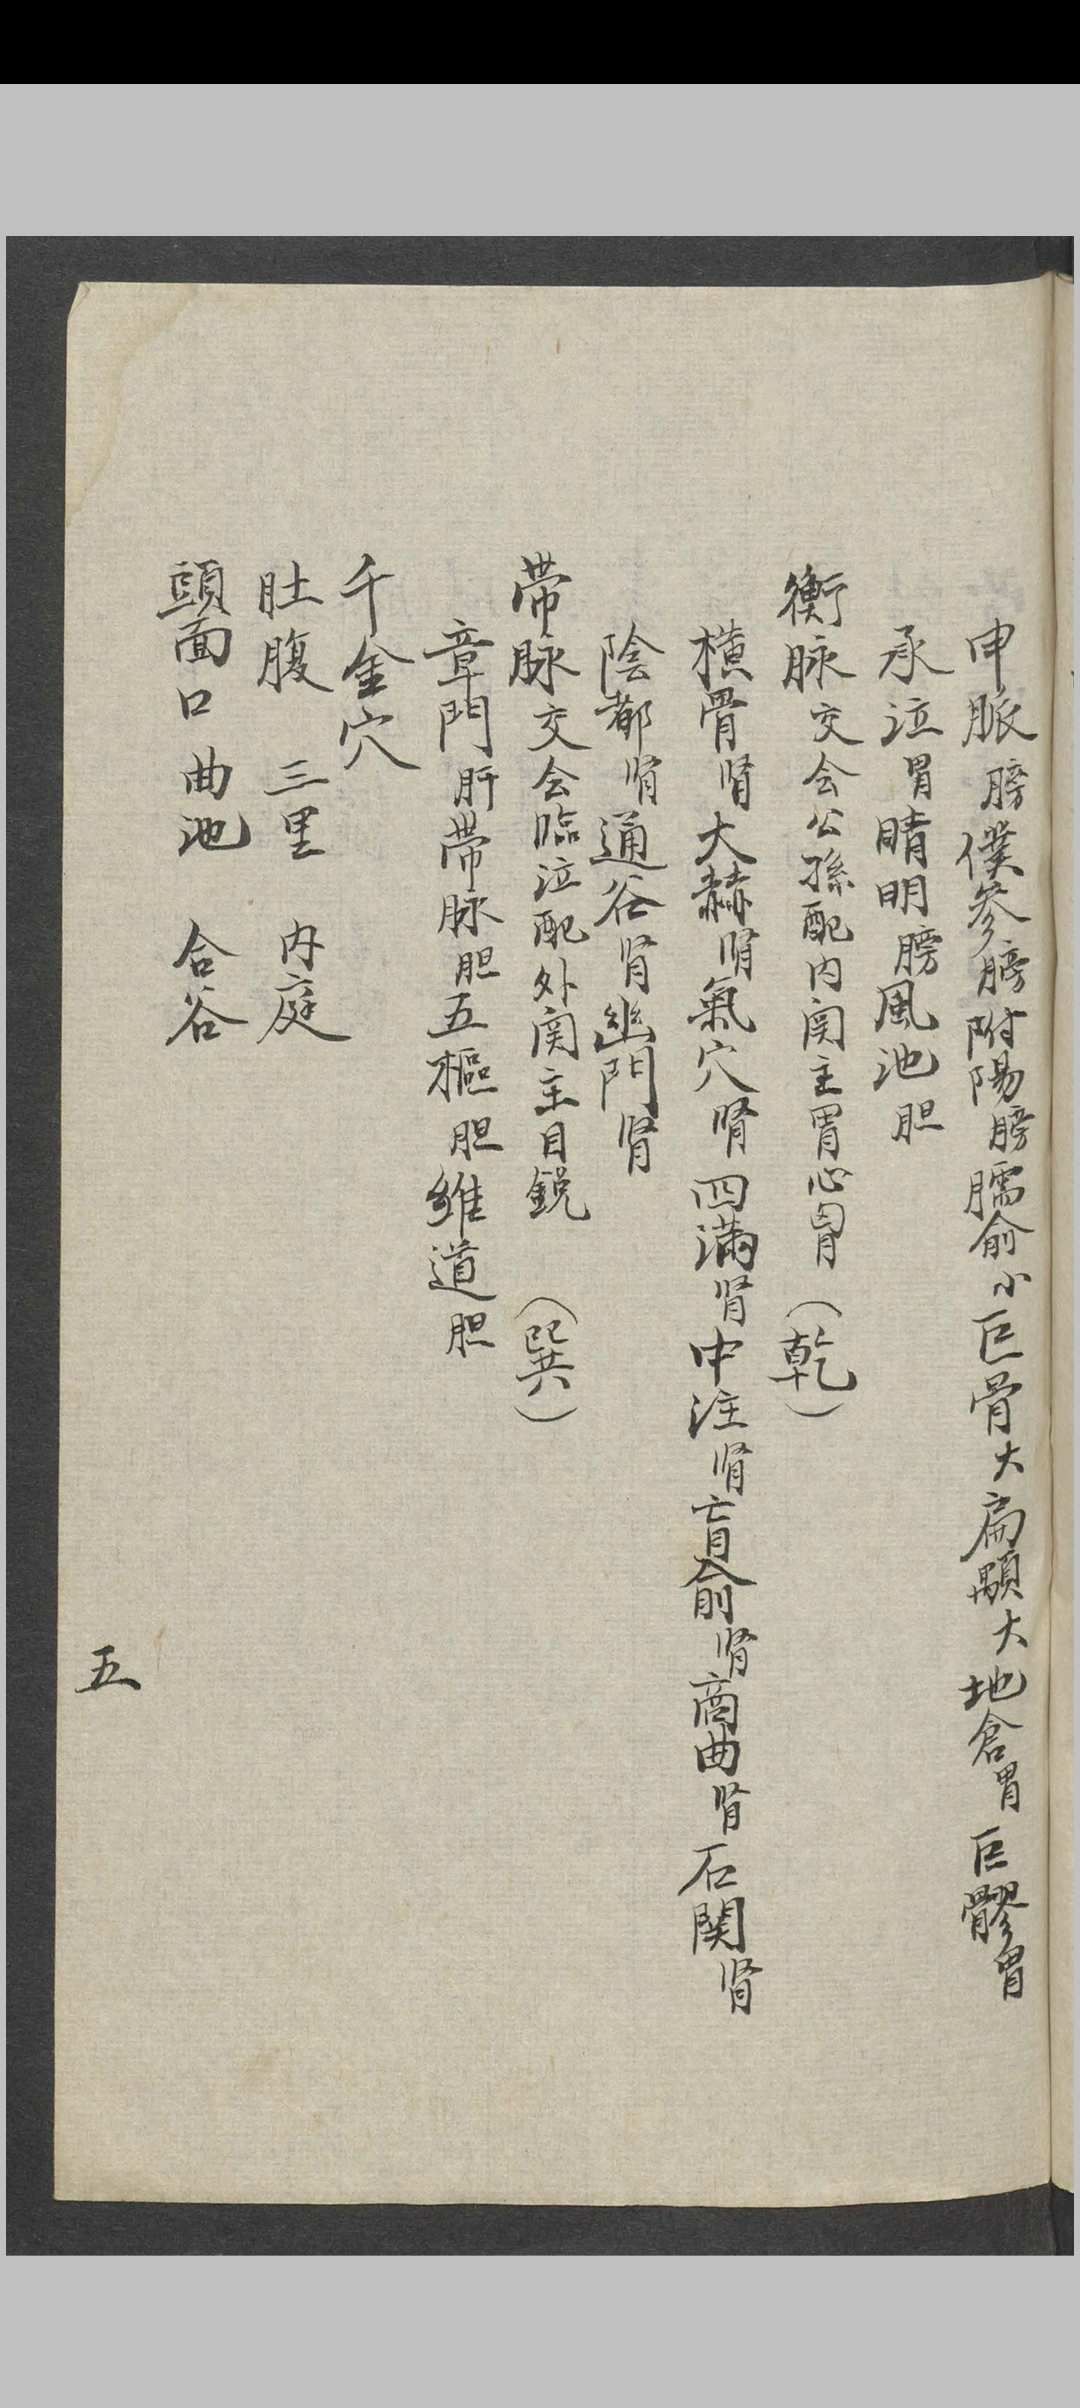 申脈膀僕參膀附陽膀臑俞小巨骨大扁顒大地倉胃巨髎胃
承泣胃睛明膀風池胆
衝脉交会公孫配内関主胃心胷（乾）
横骨肾大赫肾氣穴肾四滿肾中注肾肓俞肾商曲肾石関肾
陰都肾通谷肾幽門肾
帶脉交会臨泣配外関主目銳（巽）
章門肝帶脉胆五樞胆維道胆
千金穴
肚腹 三里 内庭
頭面口 曲池 合谷
五